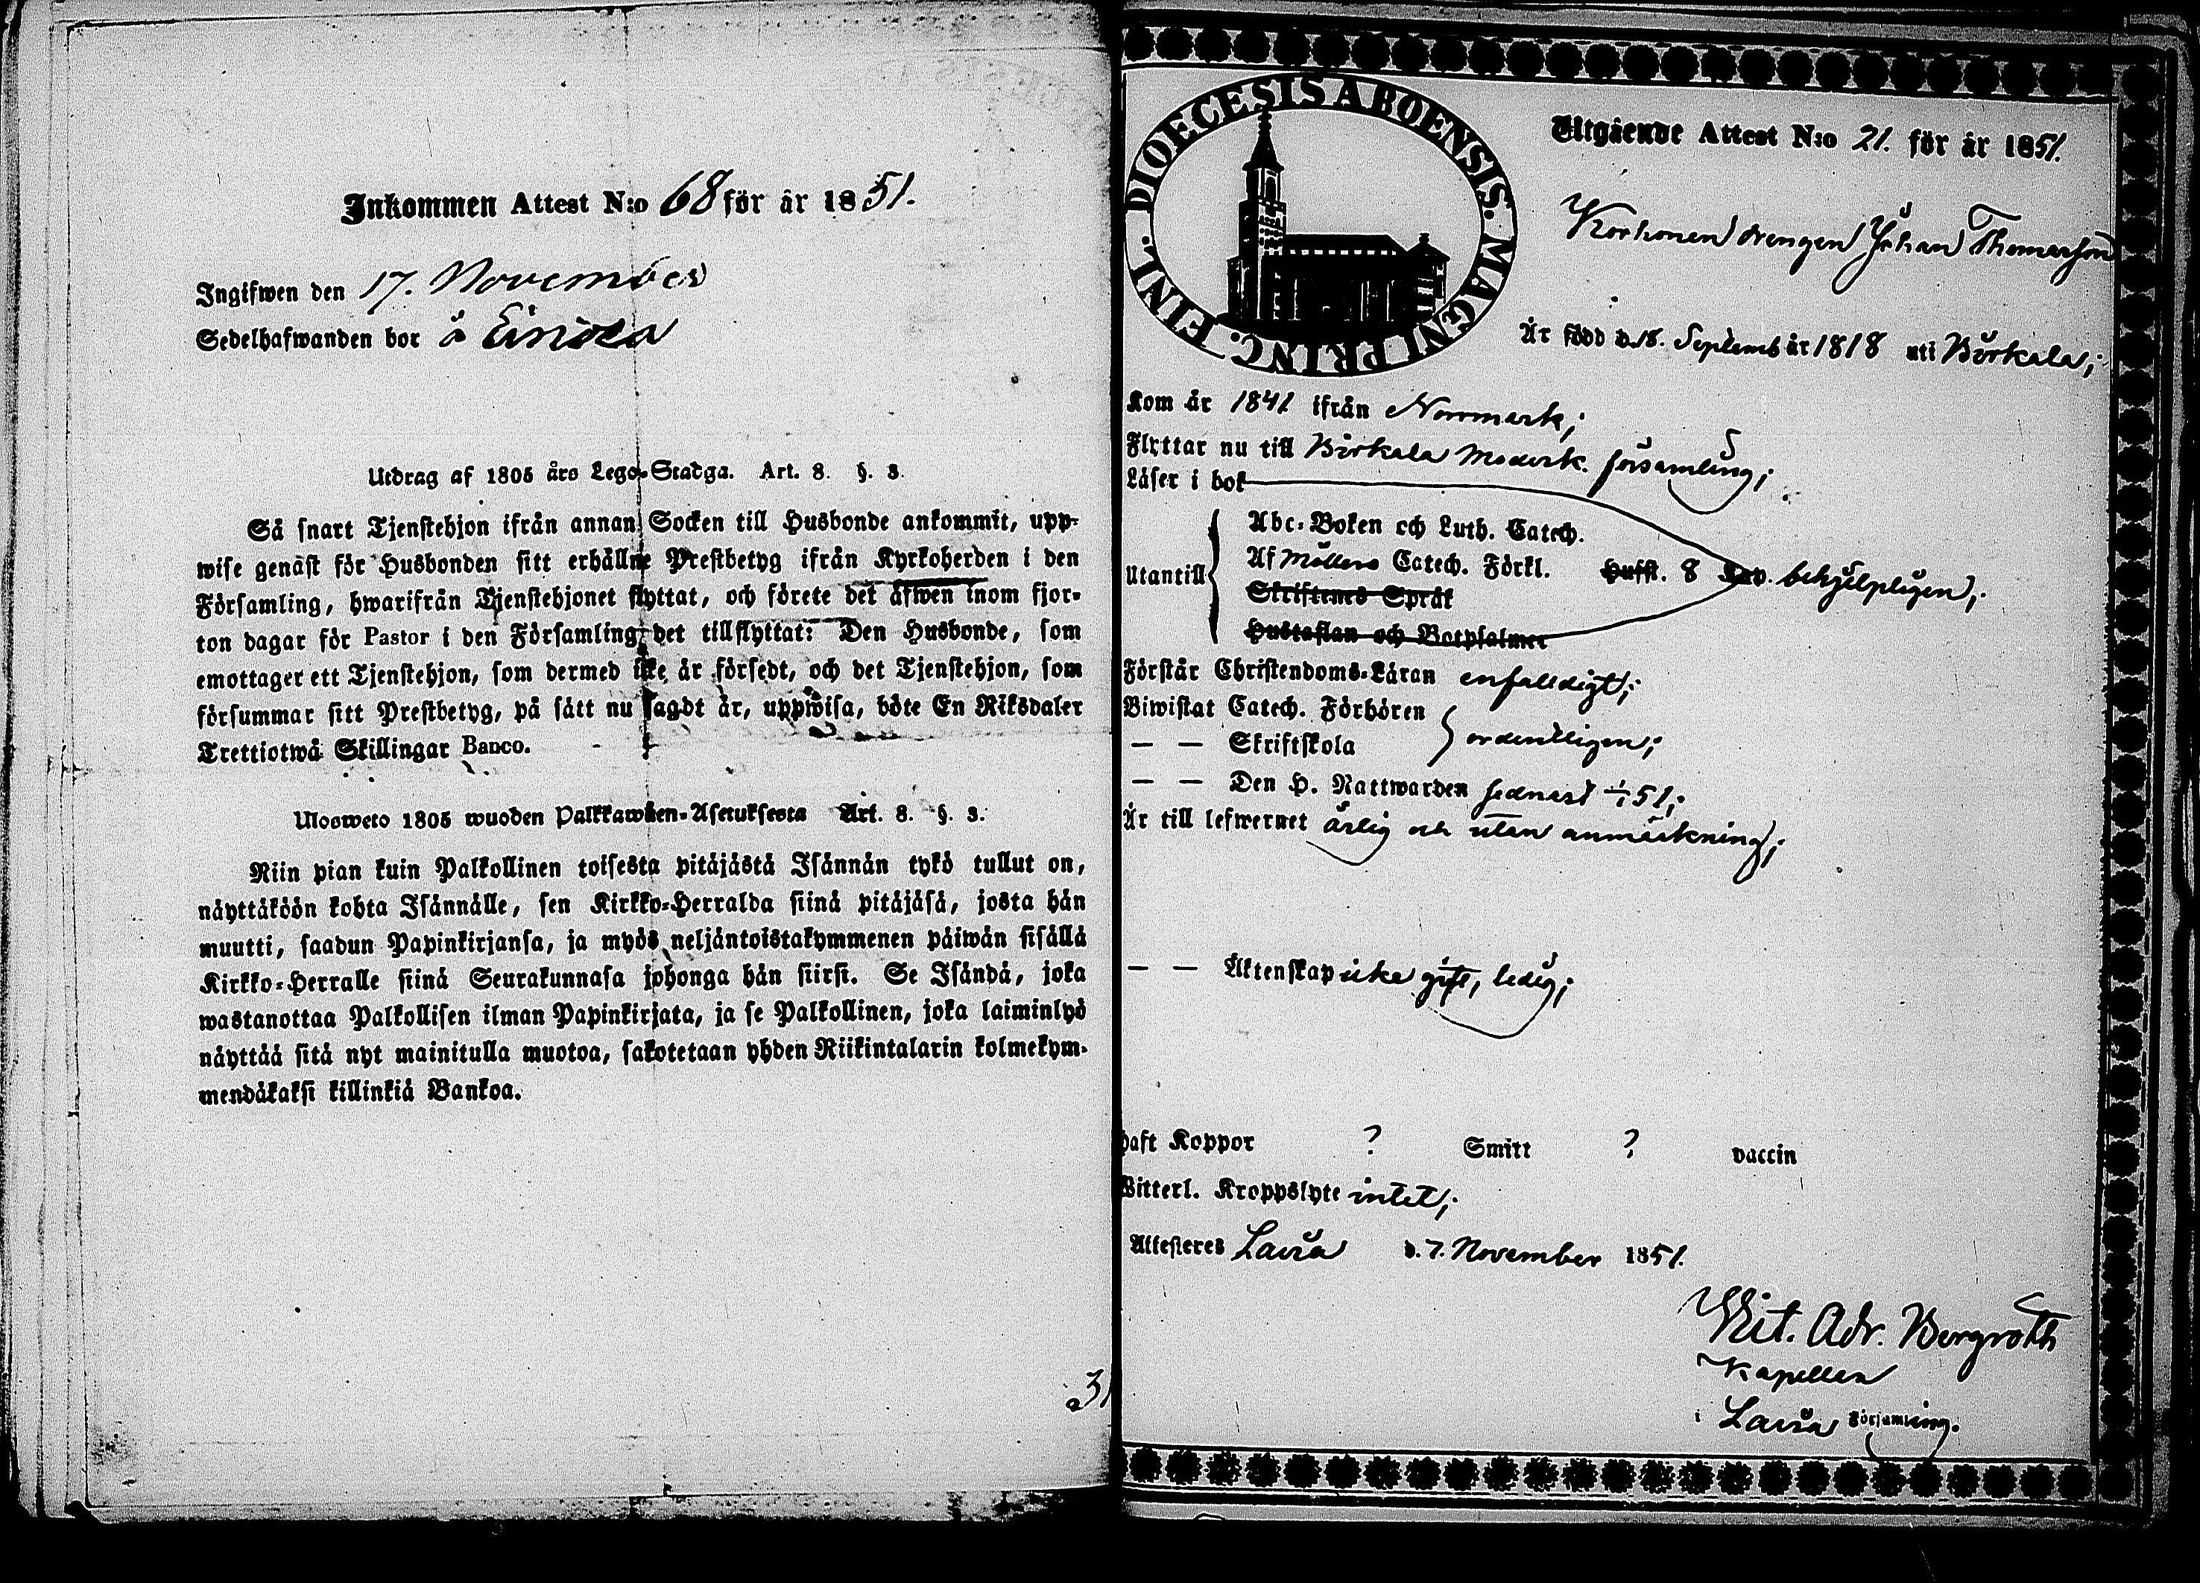 Inkommen Attest N:o 68 för år 1851.
Ingifwen den 17. November
Sedelhafwanden bor å
Utdrag af 1805 års Lego-Stadga. Art. 8. §. 3.
Så snart Tjenstehjon ifrån annan Socken till Husbonde ankommit, upp-
wise genast för Husbonden sitt erhållne Prestbetyg ifrån Kyrkoherden i den
Församling, hwarifrån Tjenstehjonet flyttat, och förete det äfwen inom fjor-
ton dagar för Pastor i den Församling det tillflyttat: Den Husbonde, som
emottager ett Tjenstehjon, som dermed icke är försedt, och det Tjenstehjon, som
försummar sitt Prestbetyg, på sätt nu sagdt är, uppwisa, böte En Riksdaler
Trettiotwå Skillingar Banco.
Ulosweto 1805 wuoden Palkkawäen-Asetuksesta Art. 8. §. 3.
Niin pian kuin Palkollinen toisesta pitäjästä Isännän tykö tullut on,
näyttäköön kohta Isännälle, sen Kirkko-Herralda siinä pitäjäsä, josta hän
muutti, saadun Papinkirjansa, ja myös neljäntoistakymmenen päiwän sisällä
Kirkko-Herralle siinä Seurakunnasa johonga hän siirsi. Se Isändä, joka
wastanottaa Palkollisen ilman Papinkirjata, ja se Palkollinen, joka laiminlyö
näyttää sitä nyt mainitulla muotoa, sakotetaan yhden Riikintalarin kolmekym-
mendäkaksi killinkiä Bankoa.
31
DIOECESIS ABOENSIS. MAGNI PRINC. FINL.
Utgående Attest N:o 21. för år 1851.
Korhonen drengen Johan Thomasson
Är född d. 18. Septemb år 1818 uti Birkala;
Kom år 1841 ifrån Norrmark;
Flyttar nu till Birkala Moderk. församling;
Läser i bok
Utantill
Abc-Boken och Luth. Catech.
Af Möllers Catech. Förkl. Hufst. 8 Cap. behjelpligen;
Skriftenes Språk
Hustaflan och Botpsalmer
Förstår Christendoms-Läran enfaldigt;
Biwistat Catech. Förhören
— — Skriftskola ordentligen;
— — Den H. Nattwarden sednast 51;
Är till lefwernet ärlig och utan anmärkning;
— — Äktenskap icke gift, ledig;
haft Koppor ? Smitt ? vaccin
Witterl. Kroppslyte intet;
Attesteras Lavia d. 7. November 1851.
Vit. Adr. Bergroth
Kapellan
i Lavia Församling.